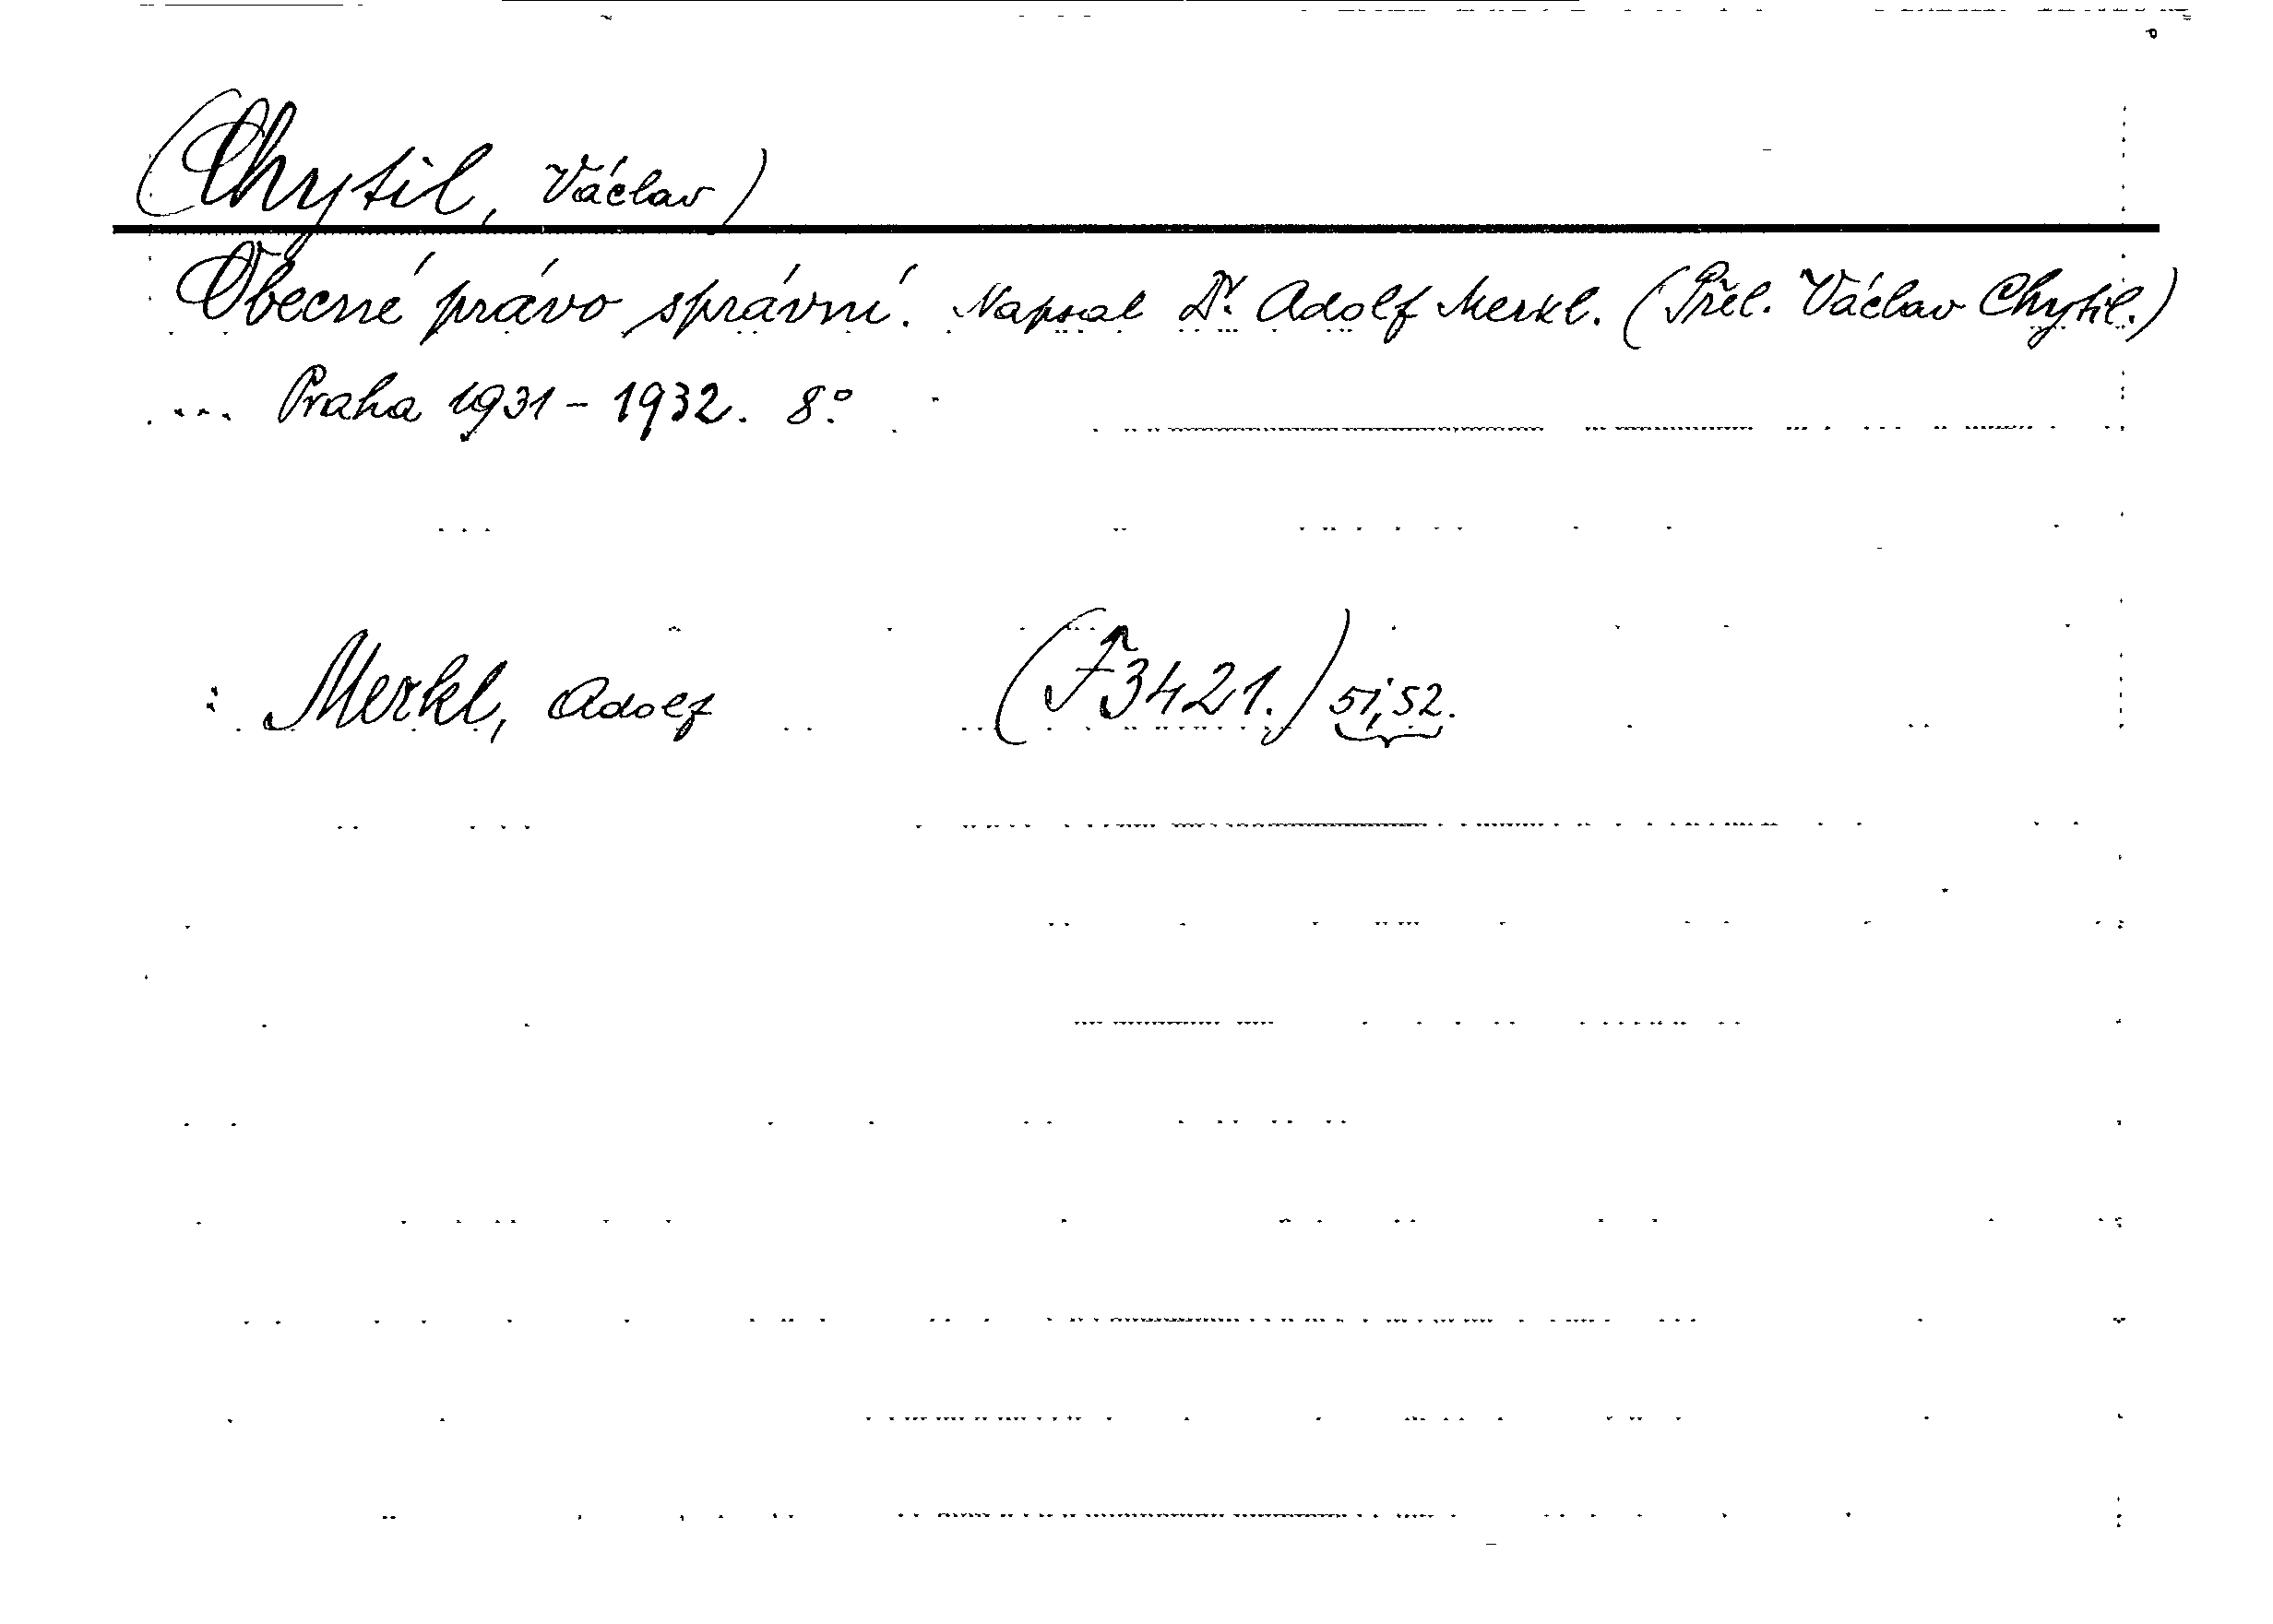 (Chytil, Václav)
Obecné právo správní. Napsal Dr. Adolf Merkl. (Přel. Václav Chytil.)
... Praha 1931 - 1932. 8°.
: Merkl, Adolf (F 3421.) 51, 52.